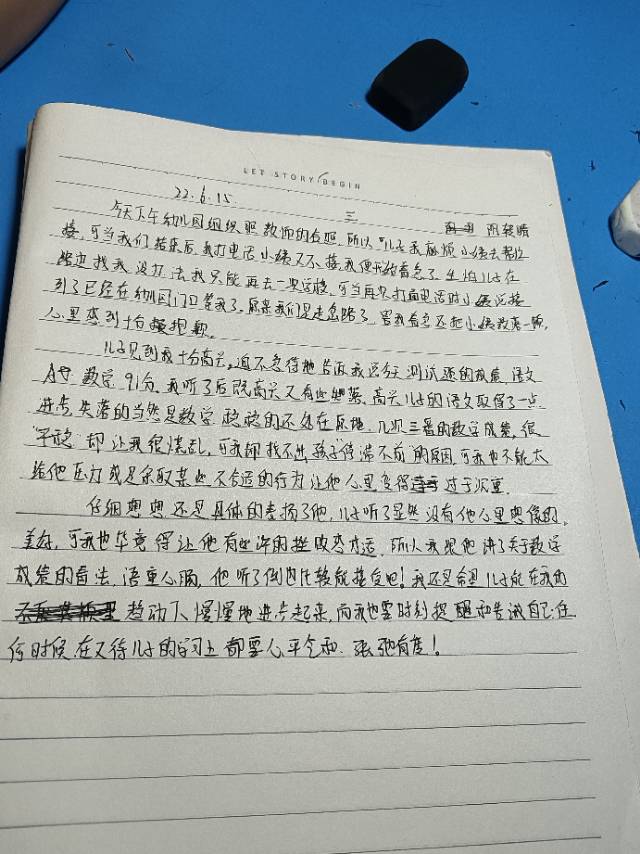 LET STORY BEGIN
22.6.15 三 阴转晴
今天下午幼儿园组织照教师的合照,所以儿子我麻烦小姨去帮忙
接,可当我们结束后我打电话小姨又不接,我便开始着急了,生怕儿子在
找我没办法我只能再去一次学校,可当再次打通电话时小姨说接
到了已经在幼儿园门口等我了,原来我们是走岔路了,
心里感到十分抱歉。
儿子见到我十分高兴,迫不急待地告诉我这今天测试题的成绩,语文
A 数学91分,我听了后既高兴又有些坠落,高兴儿子的语文取得了一点
进步,失落的当然是数学 稳稳的还处在原地,几次三番的数学成绩,很
"平稳"却让我很烦乱,可我却找不出孩子"停滞不前"的原因,可我也不能太
给他压力或是采取某些不合适的行为让他心里变得过于沉重.
仔细想想还是具体的表扬了他,儿子听了显然没有他心里想像的
美好,可我也毕竟得让他有些许的挫败感才适,所以我跟他讲了关于数学
成绩的看法,语重心肠,他听了倒也比较能接受吧!我还是希望儿子能在我的
趋动下慢慢地进步起来,而我也要时刻提醒和告诫自己:任
何时候在对待儿子的学习上都要心平气和、张弛有度!